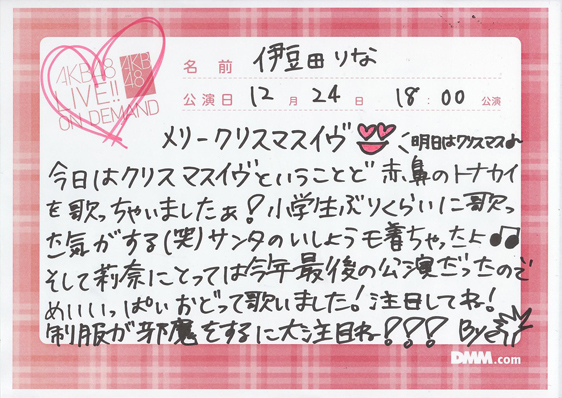 AKB48
LIVE!!
ON DEMAND
AKB
48
名前 伊豆田りな
公演日 12月24日 18:00公演
メリークリスマスイヴ 明日はクリスマス♪
今日はクリスマスイヴということど 赤鼻のトナカイ
を歌っちゃいましたぁ!小学生ぶりくらいに歌っ
た気がする(笑)サンタのいしょうモ着ちゃったよ♫
そして莉奈にとっては今年最後の公演だったので
めいいっぱいおどって歌いました!注目してね!
制服が邪魔をするに大注目ね!!! By
DMM.com